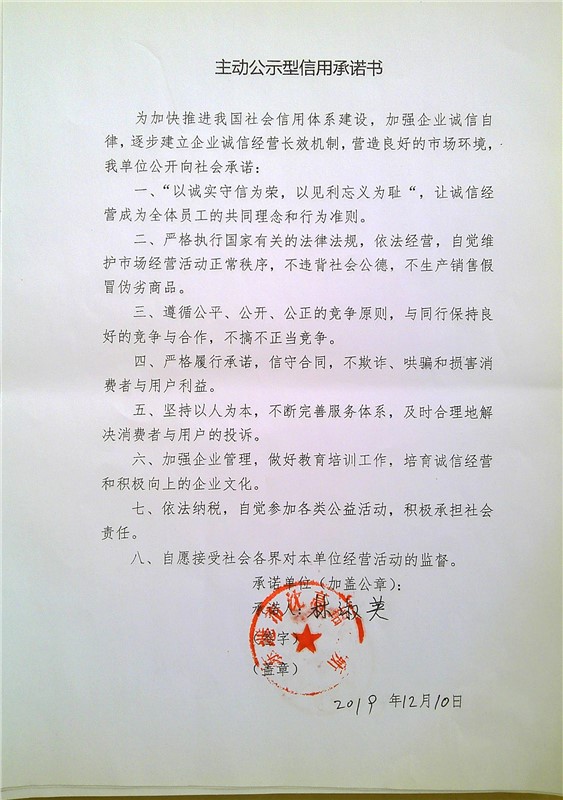 主动公示型信用承诺书
为加快推进我国社会信用体系建设，加强企业诚信自
律，逐步建立企业诚信经营长效机制，营造良好的市场环境，
我单位公开向社会承诺：
一、“以诚实守信为荣，以见利忘义为耻“，让诚信经
营成为全体员工的共同理念和行为准则。
二、严格执行国家有关的法律法规，依法经营，自觉维
护市场经营活动正常秩序，不违背社会公德，不生产销售假
冒伪劣商品。
三、遵循公平、公开、公正的竞争原则，与同行保持良
好的竞争与合作，不搞不正当竞争。
四、严格履行承诺，信守合同，不欺诈、哄骗和损害消
费者与用户利益。
五、坚持以人为本，不断完善服务体系，及时合理地解
决消费者与用户的投诉。
六、加强企业管理，做好教育培训工作，培育诚信经营
和积极向上的企业文化。
七、依法纳税，自觉参加各类公益活动，积极承担社会
责任。
八、自愿接受社会各界对本单位经营活动的监督。
承诺单位(加盖公章)：
承诺人：林淑美
(签字)
(盖章)
2019 年12月10日